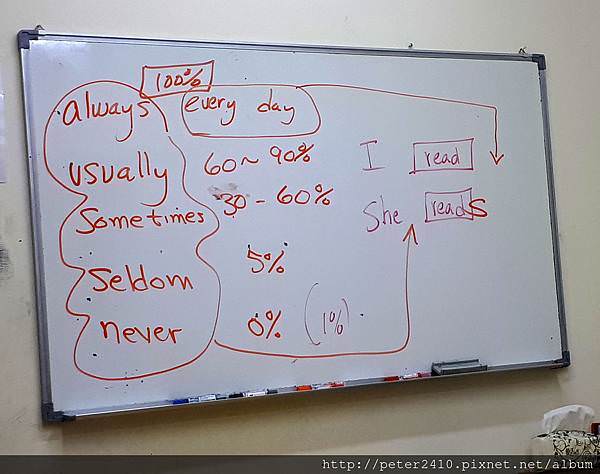 100%
always every day
usually 60~90% I read
sometimes 30-60% She reads
seldom 5%
never 0% (1%)
http://peter2410.pixnet.net/album